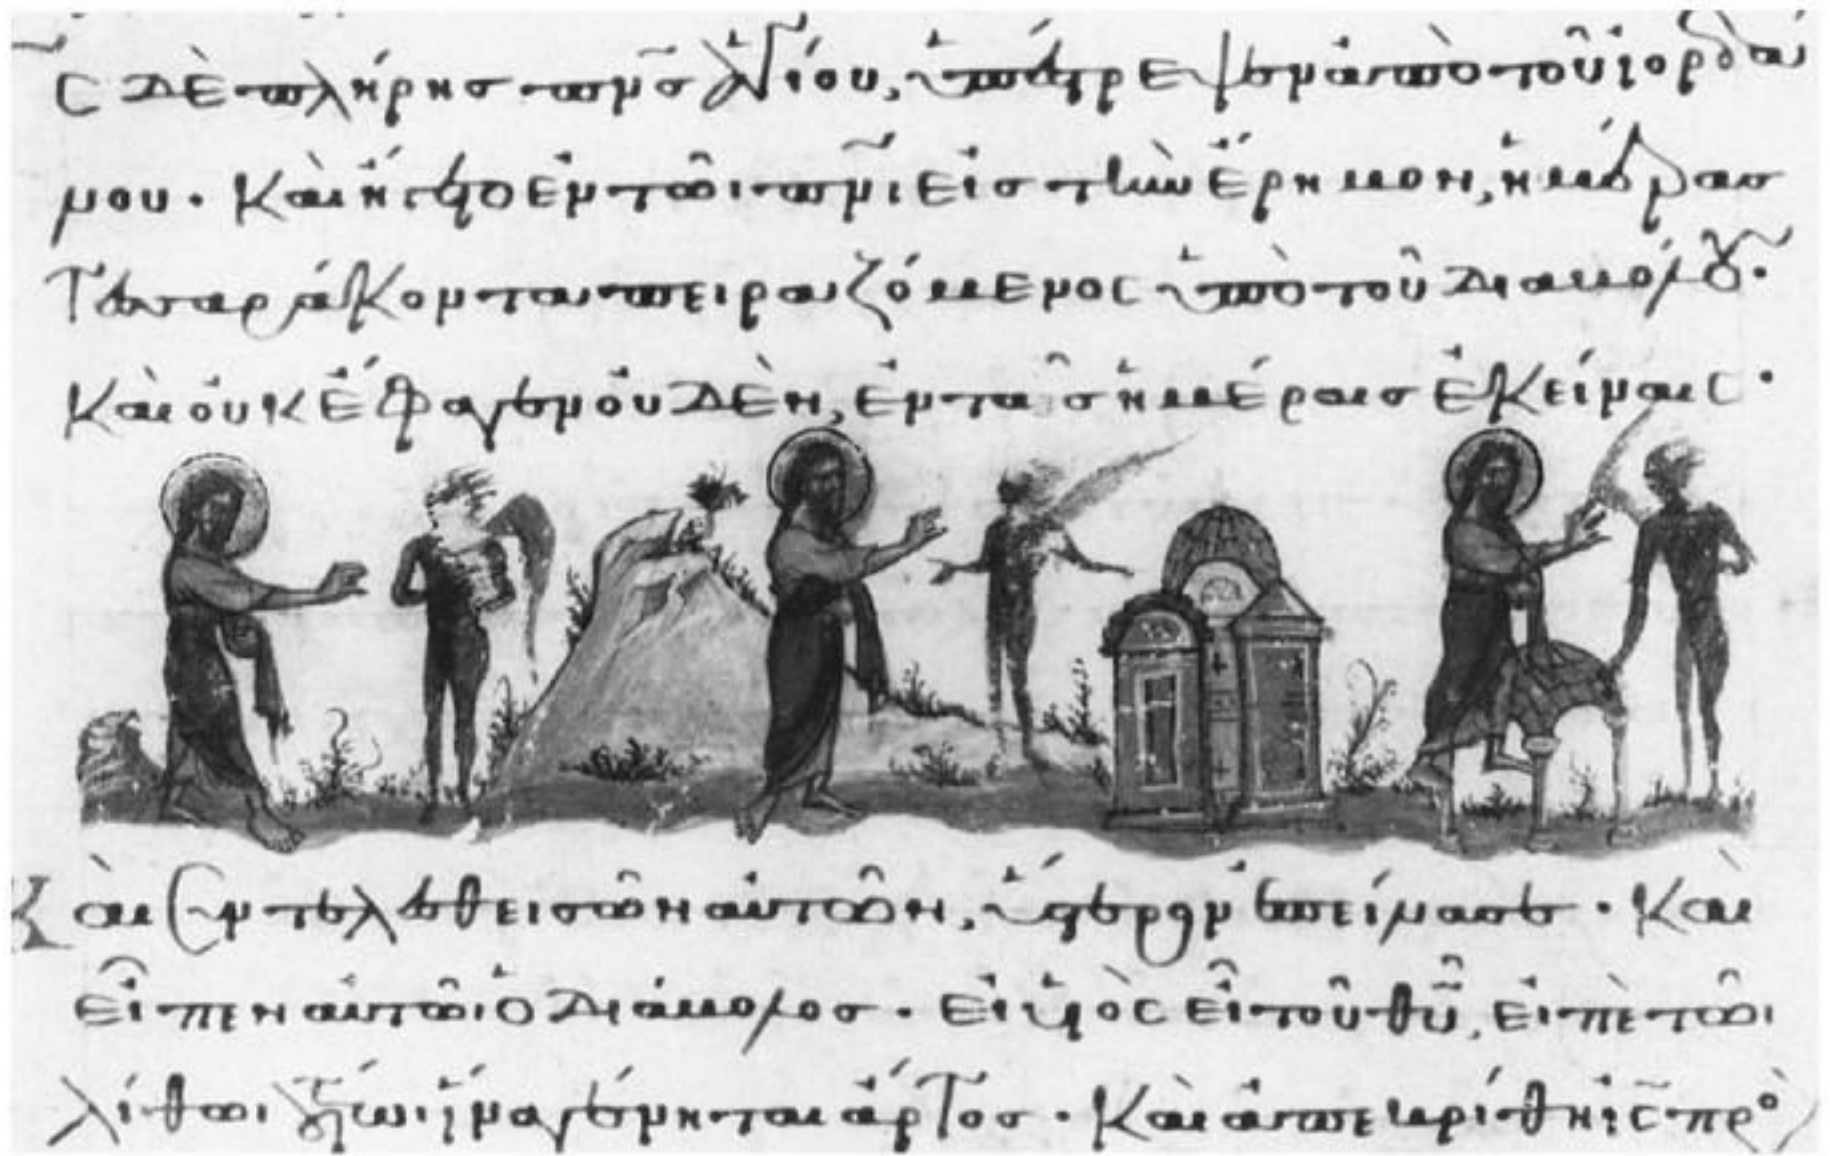 ς δὲ πλήρης πν̅ς ἁγίου, ὑπέστρεψεν ἀπὸ τοῦ ἰορδά
νου. καὶ ἤγετο ἐν τῶι πν̅ι εἰς τὴν ἔρημον, ἡμέρας
τεσσαράκοντα πειραζόμενος ὑπὸ τοῦ διαβόλου.
καὶ οὐκ ἔφαγεν οὐδὲν, ἐν ταῖς ἡμέραις ἐκείναις.
Καὶ συντελεσθεισῶν αὐτῶν, ὕστερον ἐπείνασε. καὶ
εἶπεν αὐτῶι ὁ διάβολος. εἰ υἱὸς εἶ τοῦ θυ̅, εἰπὲ τῶι
λίθωι τούτωι ἵνα γένηται ἄρτος. καὶ ἀπεκρίθη ις̅ πρὸ